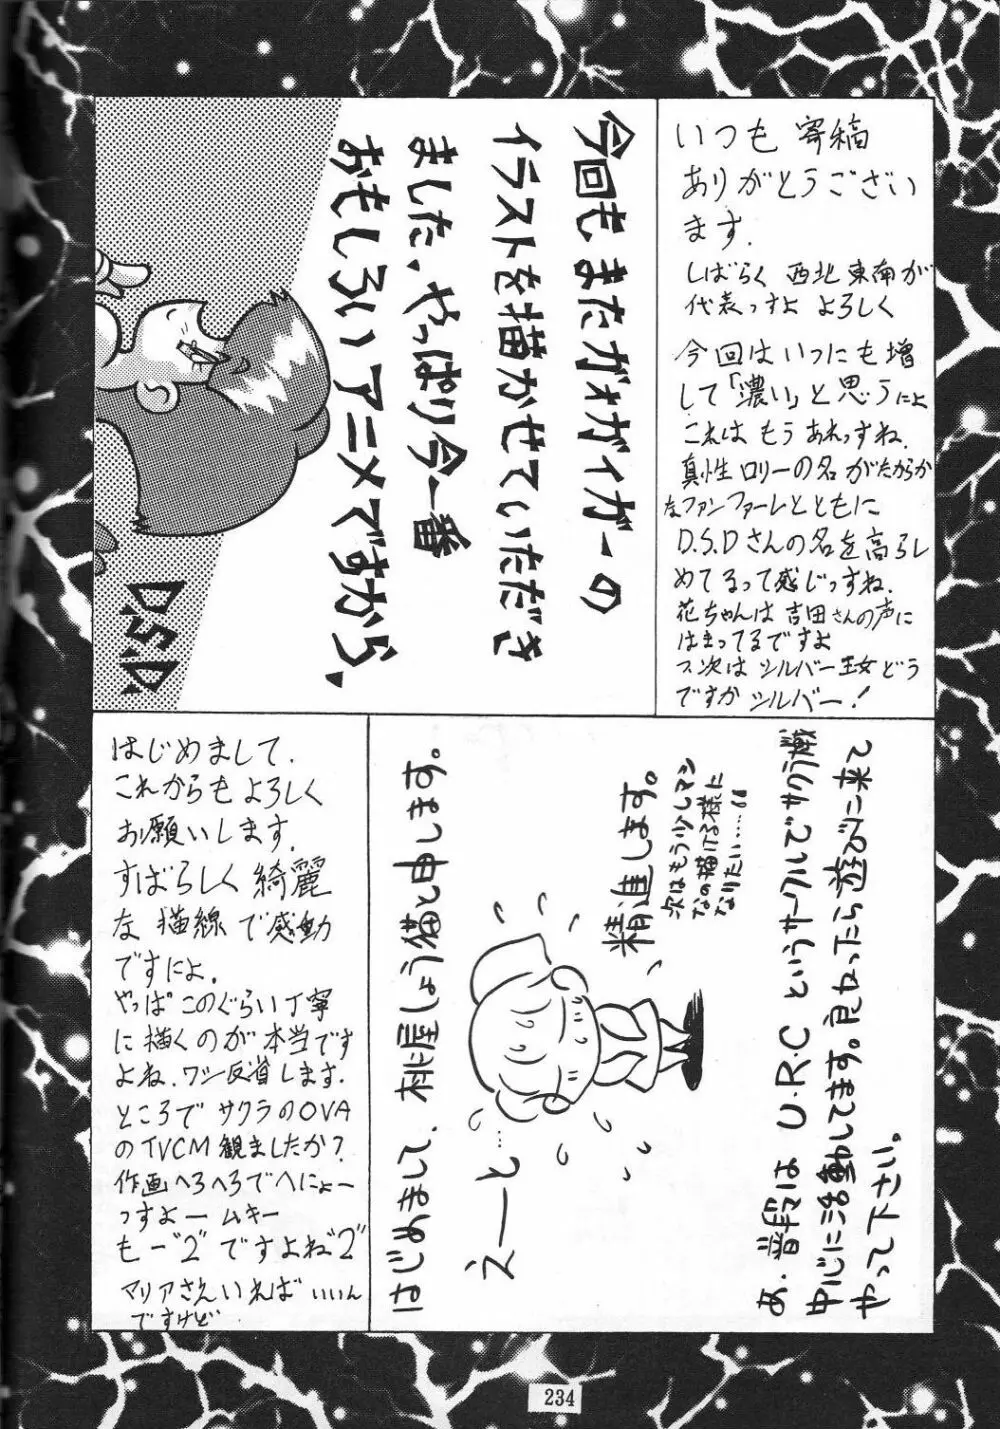 いつも寄稿
ありがとうござい
ます.
しばらく 西北東南が
代表っすよ よろしく
今回はいつにも増
して「濃い」と思うによ
これは もう あれっすね.
真性ロリーの名 がたからか
なファンファーレとともに
D.S.Dさんの名を高らし
めてるって感じっすね.
花ちゃんは 吉田さんの声に
はまってるですよ
次は シルバー王女どう
ですか シルバー!
今回もまたガオガイガーの
イラストを描かせていただき
ました、やっぱり今一番
おもしろいアニメですから、
D.S.D
はじめまして.
これからも よろしく
お願いします.
すばらしく 綺麗
な 描線で感動
ですによ.
やっぱ このぐらい丁寧
に描くのが本当です
よね. ワシ反省します.
ところで サクラのOVA
のTVCM観ましたか?
作画へろへろでへにょー
っすよー ムキー
もー"2"ですよね"2"
マリアさえいれば いいん
ですけど
はじめまして、桃屋しょう猫と申します。
えーと…
精進します。
次はもう少しマシ
なの描ける様に
なりたい……
あ、普段は U・R・C というサークルでサクラ戦
中心に活動してます。良かったら遊びに来て
やって下さい。
234